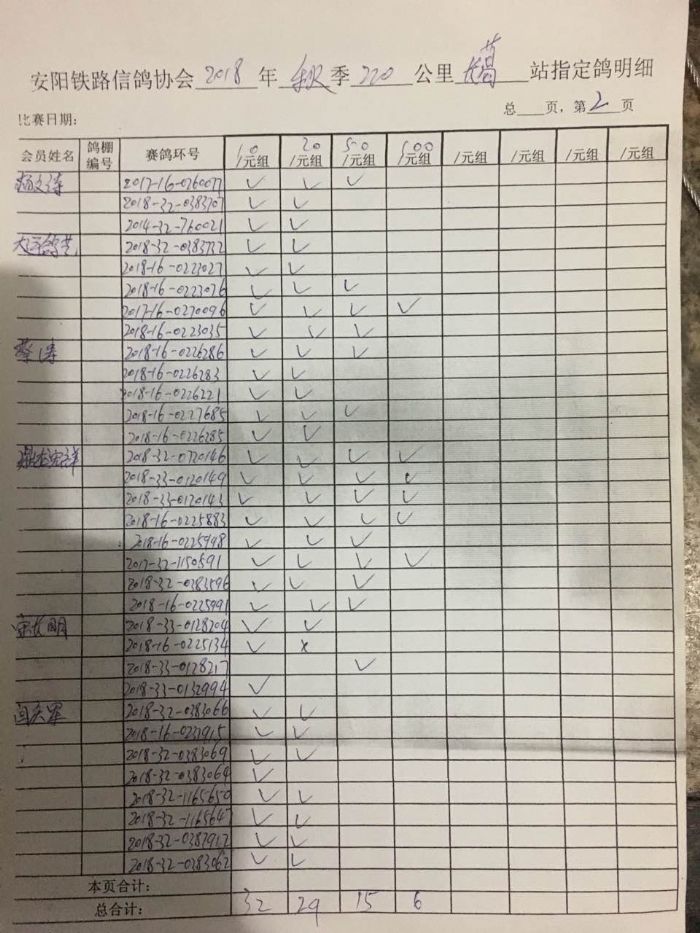 安阳铁路信鸽协会 2018 年 秋 季 220 公里 长葛 站指定鸽明细
比赛日期: 总 页，第 2 页
会员姓名 鸽棚编号 赛鸽环号 10/元组 20/元组 50/元组 100/元组 /元组 /元组 /元组 /元组
2017-16-0260077 ✓ ✓ ✓
2018-32-0383707 ✓ ✓
2014-32-760021 ✓ ✓
2018-32-0383732 ✓ ✓
2018-16-0223027 ✓ ✓
2018-16-0223076 ✓ ✓ ✓
2017-16-0270096 ✓ ✓ ✓ ✓
2018-16-0223035 ✓ ✓ ✓
蔡涛 2018-16-0226286 ✓ ✓ ✓
2018-16-0226283 ✓ ✓
2018-16-0226221 ✓ ✓
2018-16-0227685 ✓ ✓ ✓
2018-16-0226285 ✓ ✓
2018-32-0720146 ✓ ✓ ✓ ✓
2018-33-0120149 ✓ ✓ ✓
2018-33-0120143 ✓ ✓ ✓ ✓
2018-16-0225883 ✓ ✓ ✓ ✓
2018-16-0225998 ✓ ✓ ✓
2017-32-1150591 ✓ ✓ ✓ ✓
2018-32-0383596 ✓ ✓ ✓
2018-16-0225991 ✓ ✓ ✓
2018-33-0128204 ✓ ✓
2018-16-0225134 ✓ ×
2018-33-0128217 ✓
2018-33-0132994 ✓
闫庆军 2018-32-0383066 ✓ ✓
2018-16-0231915 ✓ ✓
2018-32-0383069 ✓ ✓
2018-32-0383064 ✓
2018-32-1165650 ✓ ✓
2018-32-1165647 ✓ ✓
2018-32-0387912 ✓ ✓
2018-32-0383062 ✓ ✓
本页合计:
总合计: 32 29 15 6